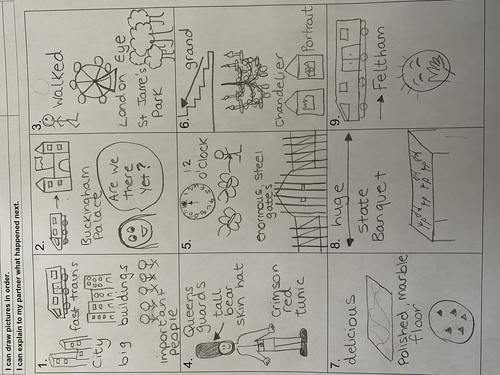 I can draw pictures in order.
I can explain to my partner what happened next.
1.
fast trains
City
big
buildings
important
people
2.
Buckingham
Palace
Are we
there
yet?
3.
Walked
London Eye
St Jam's
Park
4.
Queens
guards
tall
bear
skin hat
Crimson
red
tunic
5.
12
O'clock
enormous, steel
gates
6.
grand
Chandelier
Portrait
7.
delicious
Polished marble
floor
8.
huge
State
Banquet
9.
Feltham